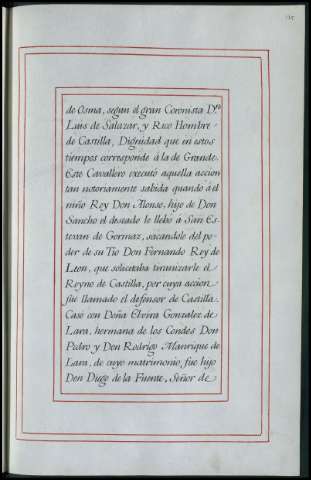 de Osma, segun el gran Coronista Dn.
Luis de Salazar, y Rico Hombre
de Castilla, Dignidad que en estos
tiempos corresponde à la de Grande.
Este Cavallero executó aquella accion
tan notoriamente sabida quando à el
niño Rey Don Alonso, hijo de Don
Sancho el deseado le llebò a San Es-
tevan de Gormaz, sacandole del po-
der de su Tio Don Fernando Rey de
Leon, que solicitaba tiranizarle el
Reyno de Castilla, por cuya accion
fue llamado el defensor de Castilla.
Casò con Doña Elvira Gonzalez de
Lara, hermana de los Condes Don
Pedro y Don Rodrigo Manrique de
Lara, de cuyo matrimonio, fue hijo
Don Diego de la Fuente, Señor de